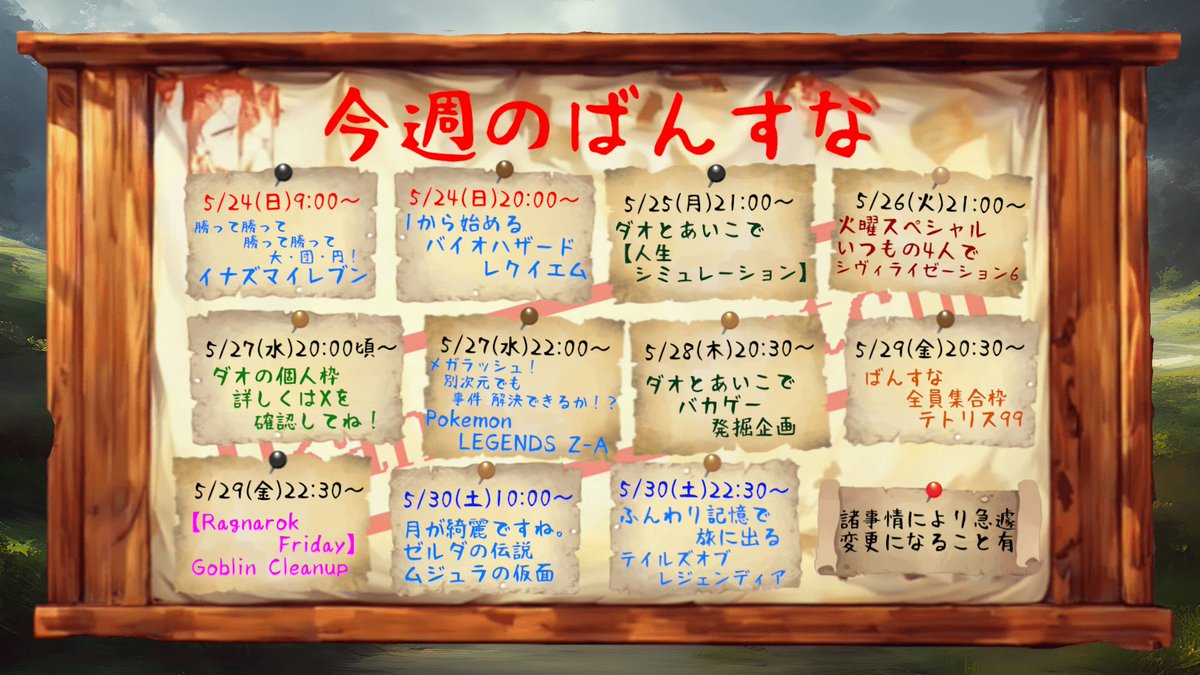 今週のばんすな
5/24(日)9:00～
勝って勝って
勝って勝って
大・団・円！
イナズマイレブン
5/24(日)20:00～
1から始める
バイオハザード
レクイエム
5/25(月)21:00～
ダオとあいこで
【人生
シミュレーション】
5/26(火)21:00～
火曜スペシャル
いつもの4人で
シヴィライゼーション6
5/27(水)20:00頃～
ダオの個人枠
詳しくはXを
確認してね！
5/27(水)22:00～
メガラッシュ！
別次元でも
事件 解決できるか！？
Pokemon
LEGENDS Z-A
5/28(木)20:30～
ダオとあいこで
バカゲー
発掘企画
5/29(金)20:30～
ばんすな
全員集合枠
テトリス99
5/29(金)22:30～
【Ragnarok
Friday】
Goblin Cleanup
5/30(土)10:00～
月が綺麗ですね。
ゼルダの伝説
ムジュラの仮面
5/30(土)22:30～
ふんわり記憶で
旅に出る
テイルズオブ
レジェンディア
諸事情により急遽
変更になること有